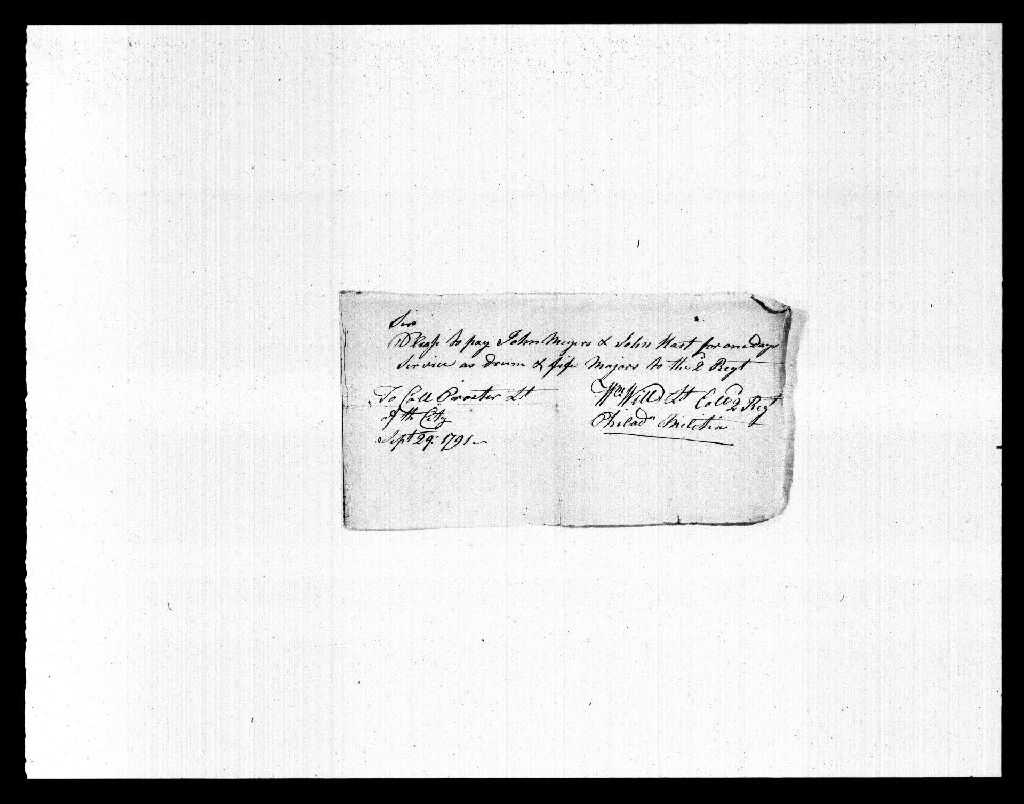 Sir
Please to pay John Meyers & John Hast for one days
Service as drum & fife Majors to the 2 Regt
To Coll Procter Lt
of the City
Sept 29. 1791
Wm Will Lt Coll 2 Regt
Philada Militia